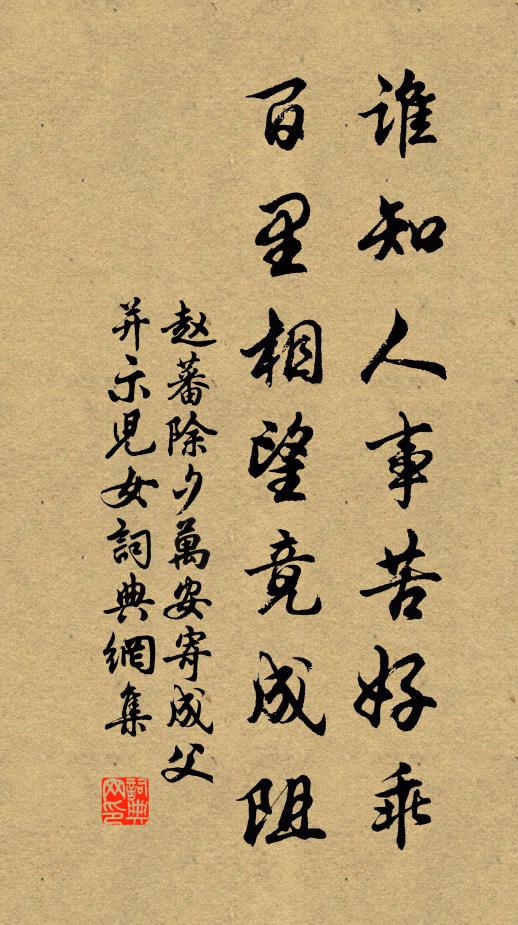 谁知人事苦好乖
百里相望竟成阻
赵蕃除夕萬安寄成父
并示兒女詞典網集
詞典
网印